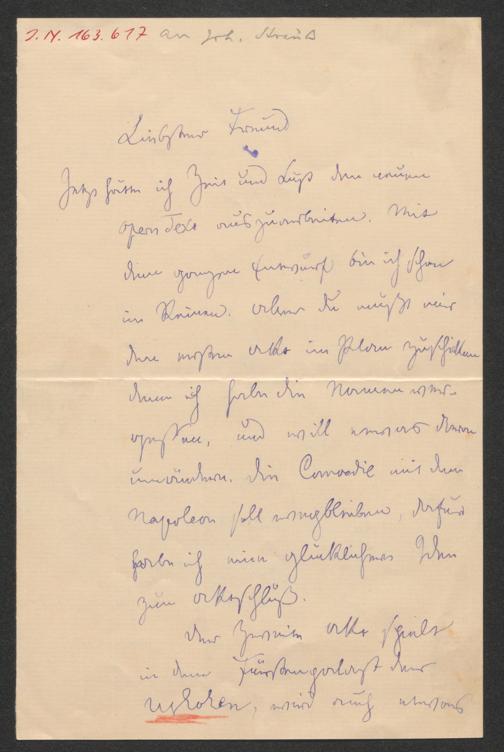 J.N. 163.617 an Joh. Strauß
Liebster Freund
Jetzt hätte ich Zeit und Lust den neuen
opern Text auszuarbeiten. Mit
dem ganzen Entwurf bin ich schon
im Reinen. aber du mußt mir
den ersten Akt im Plan zuschicken
denn ich habe die Namen ver-
gessen, und will etwas daran
umändern. Die Comoedie mit dem
Napoleon soll wegbleiben, dafür
habe ich eine glückliche Idee
zum Aktschluß.
Der zweite Akt spielt
in dem Fürstenpalast der
, wird auch etwas